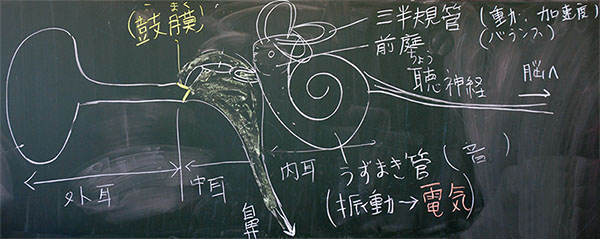 こまく
(鼓膜)
三半規管 (重力、加速度)
(バランス)
前庭
ちょう
聴神経
脳へ
外耳
中耳
内耳
うずまき管 (音)
(振動→電気)
鼻